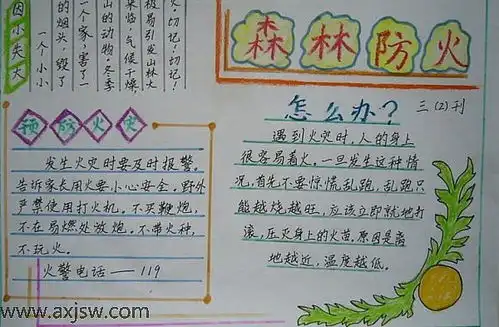 因小失大
一个小小
的烟头,毁了
一个家,害了一
山的动物。冬季
来临,气候干燥
极易引发山林大
火,切记!切记!
森林防火
三(2)刊
预防火灾
发生火灾时要及时报警。
告诉家长用火要小心安全。野外
严禁使用打火机。不买鞭炮,
不在易燃处放炮。不带火种,
不玩火。
火警电话——119
怎么办?
遇到火灾时,人的身上
很容易着火。一旦发生这种情
况,首先不要惊慌乱跑。乱跑只
能越烧越旺。应该立即就地打
滚,压灭身上的火苗。原因是离
地越近,温度越低。
www.axjsw.com